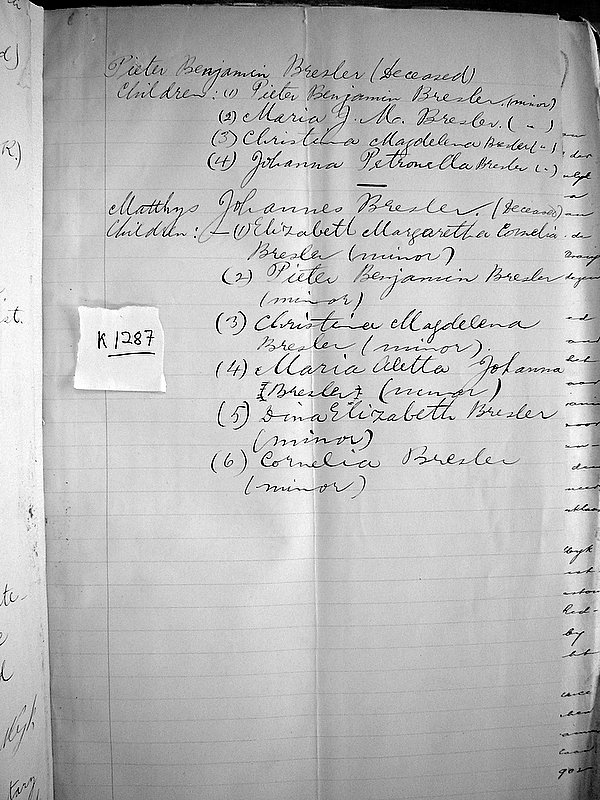 Pieter Benjamin Bresler (Deceased)
Children: (1) Pieter Benjamin Bresler (minor)
(2) Maria J. M. Bresler. ( " )
(3) Christina Magdelena Bresler ( " )
(4) Johanna Petronella Bresler ( " )
Matthys Johannes Bresler. (Deceased)
Children: — (1) Elizabeth Margaretta Cornelia
Bresler (minor)
(2) Pieter Benjamin Bresler
(minor)
(3) Christina Magdelena
Bresler (minor).
(4) Maria Aletta Johanna
[Bresler] (minor)
(5) Dina Elizabeth Bresler
(minor)
(6) Cornelia Bresler
(minor)
K1287